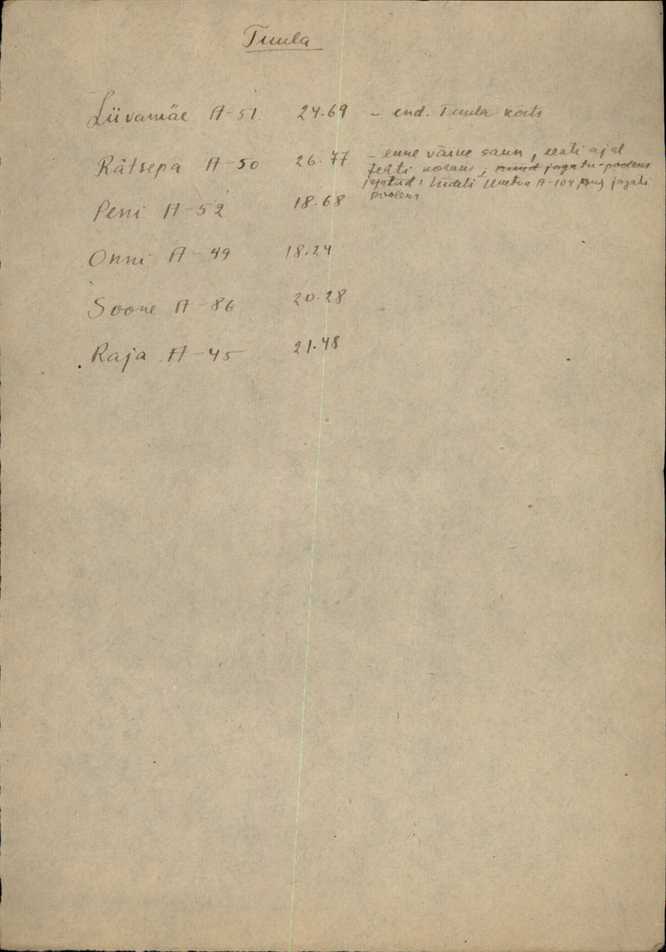 Tuula
Liivamäe A-51 24.69 - end. Tuula kõrts
Rätsepa A-50 26.77 - enne väine saun, eesti ajal
tehti, jagatu poolens
A-104 jagati
Peni A-52 18.68
poolens
Onni A-49 18.24
Soone A-86 20.28
Raja A-45 21.48